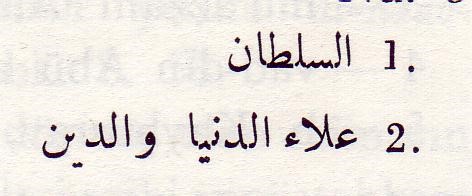 1. السلطان
2. علاء الدنيا والدين